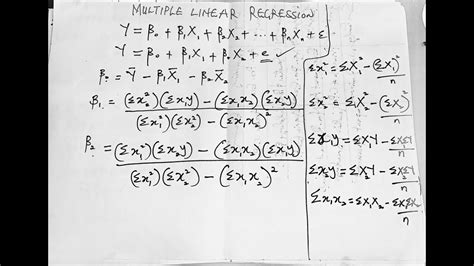 MULTIPLE LINEAR REGRESSION
Y = β₀ + β₁X₁ + β₂X₂ + ... + βₙXₙ + ε
Y = β₀ + β₁X₁ + β₂X₂ + e ✓
β₀ = Ȳ - β₁X̄₁ - β₂X̄₂
β₁ = (Σx₂²)(Σx₁y) - (Σx₁x₂)(Σx₂y) / (Σx₁²)(Σx₂²) - (Σx₁x₂)²
β₂ = (Σx₁²)(Σx₂y) - (Σx₁x₂)(Σx₁y) / (Σx₁²)(Σx₂²) - (Σx₁x₂)²
Σx₁² = ΣX₁² - (ΣX₁)² / n
Σx₂² = ΣX₂² - (ΣX₂)² / n
Σx₁y = ΣX₁Y - ΣX₁ΣY / n
Σx₂y = ΣX₂Y - ΣX₂ΣY / n
Σx₁x₂ = ΣX₁X₂ - ΣX₁ΣX₂ / n